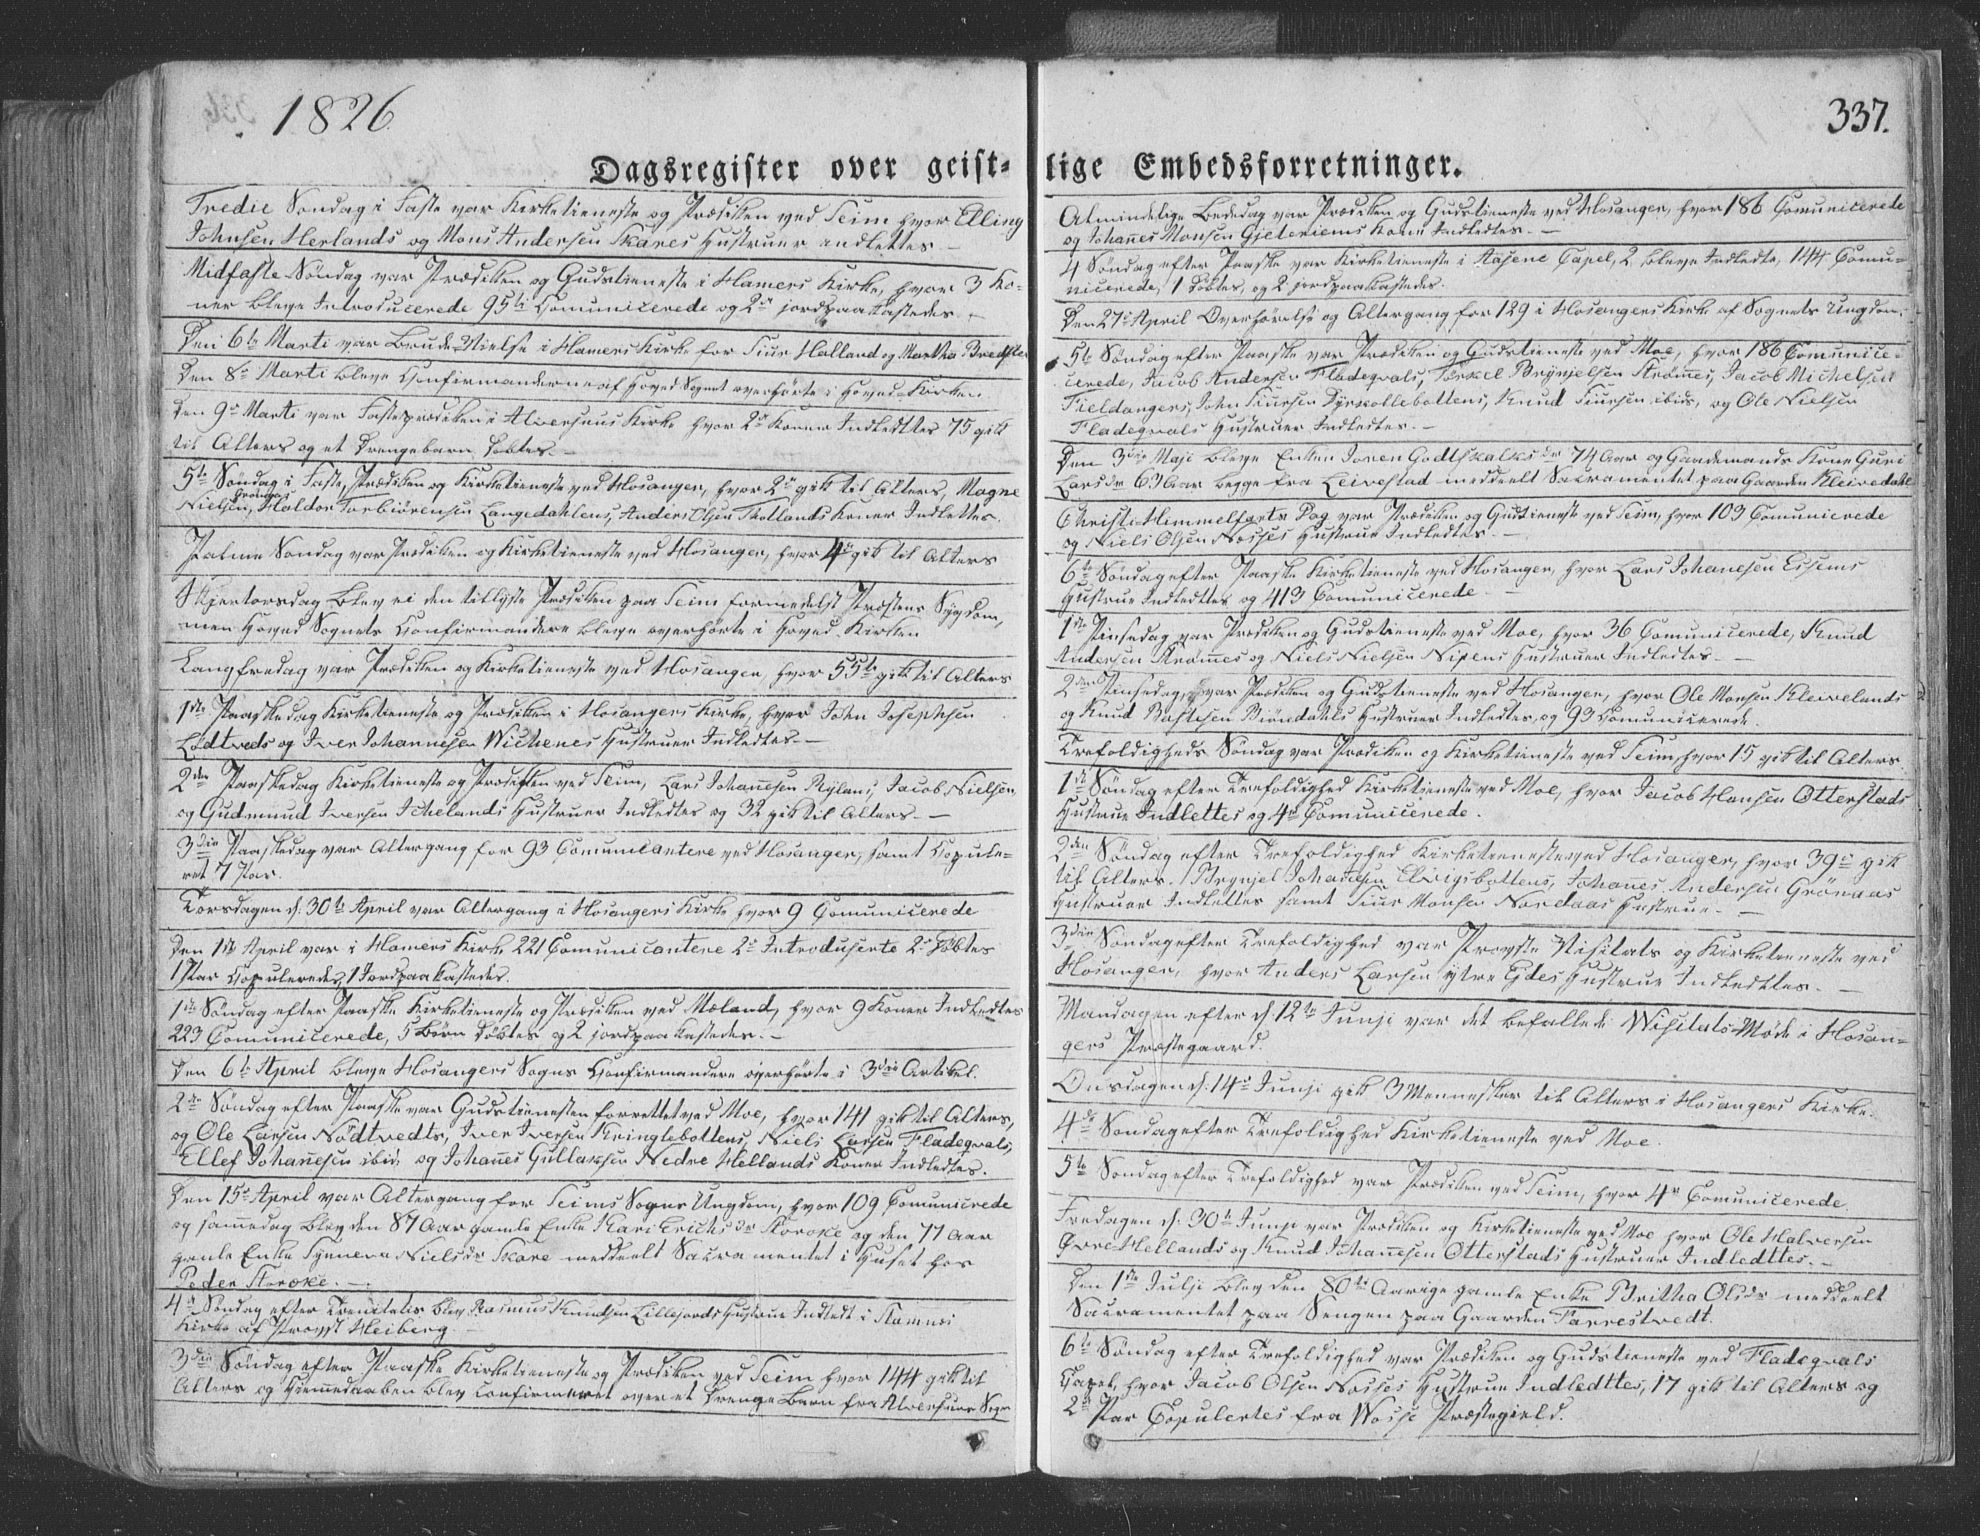 1826.
337.
Dagsregister over geist-
lige Embedsforretninger.
Tredie Søndag i Faste var Kirketieneste og Prædiken ved Seim hvor Elling
Johnsen Herlands og Mons Andersen Skares Hustruer indlettes.
Midfaste Søndag var Prædiken og Gudstieneste i Hamers Kirke, hvor 3 Ko-
ner bleve Introducerede 95 Comunicerede og 2 jordpaakastedes.
Den 6te Marti var Brude-Vielse i Hamers Kirke for Siur Halland og Martha
Den 8de Marti bleve Confirmanderne af Hoved Sognet overhørte i Hoved-Kirken
Den 9de Marti var Fasteprædiken i Alversuns Kirke hvor 2 Koner Indledttes 75 gik
til Alters og et Drengebarn døbtes.
5te Søndag i Faste, Prædiken og Kirketieneste ved Hosanger, hvor 2 gik til Alters, Magne
Nielsen, Haldor Torbiørensen Langedahlens, Anders Olsen Totlands Koner Indlettes.
Palme Søndag var Prædiken og Kirketieneste ved Hosanger, hvor 4 gik til Alters
Skjertorsdag blev ei den tillyste Prædiken paa Seim formedelst Præstens Sygdom,
men Hoved Sognets Confirmandere bleve overhørte i Hoved-Kirken
Langfredag var Prædiken og Kirketieneste ved Hosanger, hvor 55 gik til Alters
1ste Paaskedag Kirketieneste og Prædiken i Hosangers Kirke, hvor John Josephsen
Lødtveds og Iver Johannesen Wichenes Hustruer Indledtes.
2den Paaskedag Kirketieneste og Prædiken ved Seim, Lars Johannesen Rylans, Jacob Nielsen,
og Gudmund Iversen Ichelands Hustruer Indledtes og 32 gik til Alters.
3die Paaskedag var Altergang for 93 Comunicantere ved Hosanger, samt Copule-
ret 7 Par.
Torsdagen d. 30te April var Altergang i Hosangers Kirke hvor 9 Comunicerede
Den 1ste April var i Hamers Kirke 221 Comunicantere 2 Introduserte 2 Døbtes
1 Par Copuleredes, 1 Jordpaakastedes.
1ste Søndag efter Paaske Kirketieneste og Prædiken ved Mæland, hvor 9 Koner Indledtes
223 Comunicerede, 5 Børn Døbtes og 2 jordpaakastedes.
Den 6te April bleve Hosangers Sogns Confirmandere overhørte i 3die Artikel.
2den Søndag efter Paaske var Gudstienesten forrettet ved Moe, hvor 141 gik til Alters,
og Ole Larsen Nødtvedts, Iver Iversen Kringlebottens, Niels Larsen Fladeqvals,
Ellef Johannesen ibid. og Johannes Gullaksen Nedre Hellands Koner Indledtes.
Den 15de April var Altergang for Seims Sogns Ungdom, hvor 109 Comunicerede
og sammedag blev den 87 Aar gamle Enke Kari Erichsdr Storoke og den 77 Aar
gamle Enke Synneva Nielsdr Skare meddeelt Sacramentet i Huset hos
Peder Storoke.
4de Søndag efter Trenitatis blev Rasmus Knudsen Lillejords Hustrue Indledt i Stamnæs
Kirke af Provst Heiberg.
3die Søndag efter Paaske Kirketieneste og Prædiken ved Seim hvor 144 gik til
Alters og Hiemmedaaben blev confirmeret over et Drenge Barn fra Alversuns Sogn
Almindelige Bededag var Prædiken og Gudstieneste ved Hosanger, hvor 186 Comunicerede
og Johannes Monsen Gjeteriems Kone Indledtes.
4 Søndag efter Paaske var Kirketieneste i Aasene Capel, 2 bleve Indledte, 144 Comu-
nicerede, 1 Døbtes, og 2 jordpaakastedes.
Den 27de April Overhørelse og Altergang for 129 i Hosangers Kirke af Sognets Ungdom.
5te Søndag efter Paaske var Prædiken og Gudstieneste ved Moe, hvor 186 Comunice-
cerede, Jacob Andersen Fladeqvals, Torkel Brynjelsen Strømes, Jacob Michelsen
Tieldangers, John Siursen Dyrkollebottens, Knud Siursen ibid, og Ole Nielsen
Fladeqvals Hustruer Indledtes.
Den 3die Maji bleve Enken Joren Godtskalksdr 74 Aar og Gaardmands Kone Guri
Larsdr 63 Aar begge fra Leivestad meddeelt Sacramentet paa Gaarden Kleivedahl
Christi Himmelfarts Dag var Prædiken og Gudstieneste ved Seim, hvor 103 Comunicrede
og Niels Olsen Nøsses Hustrue Indledtes.
6te Søndag efter Paaske Kirketieneste ved Hosanger, hvor Lars Johanesen Eisems
Hustrue Indledttes og 413 Comunicerede.
1ste Pinsedag var Prædiken og Gudstieneste ved Moe, hvor 36 Comunicerede, Knud
Andersen Strømes og Niels Nielsen Nipens Hustruer Indledtes.
2den Pinsedag, var Prædiken og Gudstieneste ved Hosanger, hvor Ole Monsen Kleivelands
og Knud Bastesen Biørndahls Hustruer Indledtes, og 93 Comunicerede.
Trefoldigheds Søndag var Prædiken og Kirketieneste ved Seim hvor 15 gik til Alters.
1ste Søndag efter Trefoldighed Kirketieneste ved Moe, hvor Jacob Hansen Otterstads
Hustrue Indlettes og 4 Comunicerede.
2den Søndag efter Trefoldighed Kirketieneste ved Hosanger, hvor 39 gik
til Alters. Brynjel Johannesen Elvigsbottens, Johanes Andersen Grønaas
Hustruer Indlettes samt Siur Monsen Nordaas Hustrue.
3die Søndag efter Trefoldighed var Provste Visitats og Kirketieneste ved
Hosanger, hvor Anders Larsen ytre Eides Hustrue Indledttes.
Mandagen efter d. 12te Junji var det befallede Wisitats-Møde i Hosan-
gers Præstegaard.
Onsdagen d. 14de Junji gik 3 Mennesker til Alters i Hosangers Kirke.
4de Søndag efter Trefoldighed Kirketieneste ved Moe
5te Søndag efter Trefoldighed var Prædiken ved Seim, hvor 4 Comunicerede.
Fredagen d. 30te Junji var Prædiken og Kirketieneste ved Moe hvor Ole Halversen
Øvre Hellands og Knud Johannesen Otterstads Hustruer Indledttes.
Den 1ste Julji blev den 80te Aarige gamle Enke Britha Olsdr meddeelt
Sacramentet paa Sengen paa Gaarden Farrestvedt.
6te Søndag efter Trefoldighed var Prædiken og Gudstieneste ved Fladeqvals
Capel, hvor Jacob Olsen Nøsses Hustrue Indledttes, 17 gik til Alters og
2 Par Copulertes fra Wosse Præstegield.